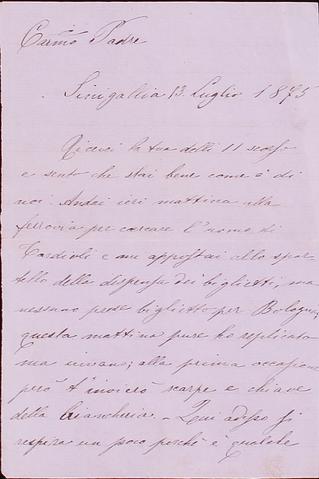 Carmo Padre
Sinigallia 13 Luglio 1875
Ricevei la tua delli 11 scorso
e sento che stai bene come è di
noi. Andai ieri mattina alla
ferrovia per cercare l'uomo di
Cardioli e mi appostai allo spor-
tello della dispensa dei biglietti, ma
nessuno prese biglietto per Bologna;
questa mattina pure ho replicato
ma invano; alla prima occasione
però t'invierò scarpe e chiave
della biancheria. Qui adesso si
respira un poco perchè è qualche